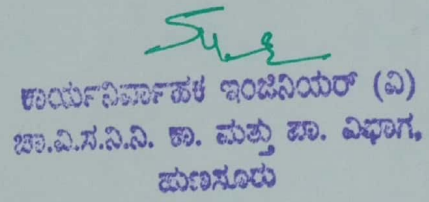 ಕಾರ್ಯನಿರ್ವಾಹಕ ಇಂಜಿನಿಯರ್ (ವಿ)
ಚಾ.ವಿ.ಸ.ನಿ.ನಿ. ಕಾ. ಮತ್ತು ಪಾ. ವಿಭಾಗ,
ಹುಣಸೂರು